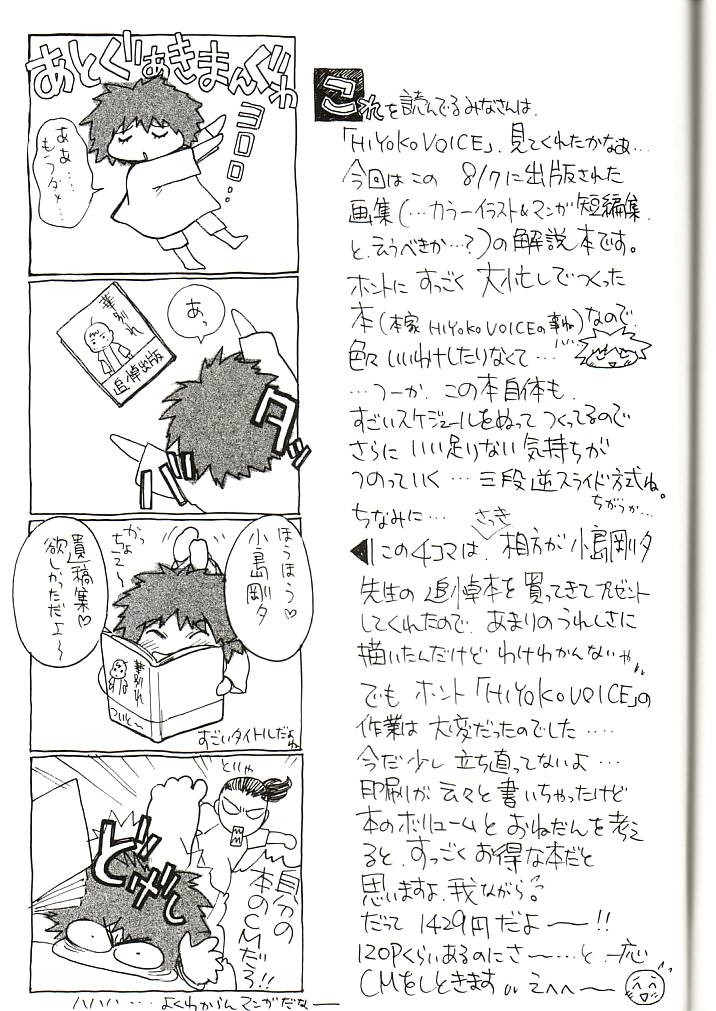 あとぐぁきまんぐわ
ヨロロ…
ああ…
もうダメ…
あっ
華別れ
追悼出版
バタッ
ほうほう♡
小島剛夕
かっちょて〜
遺稿集♡
欲しかっただよ〜
華別れ
すごいタイトルだよね
といや
どげし
自分の
本のCMだろ!!
ハハハ…よくわからんマンガだなー
これを読んでるみなさんは、
「HIYOKO VOICE」、見てくれたかなぁ…
今回はこの 8/7に出版された
画集(…カラーイラスト&マンガ短編集
と、云うべきか…?)の解説本です。
ホントに すっごく 大忙しでつくった
本(本家 HIYOKO VOICEの事ね)なので、
色々 いいわけしたりなくて…
…つーか、この本自体も、
すごいスケジュールをぬって つくってるので
さらに いい足りない気持ちが
つのっていく…三段逆スライド方式ね。
ちがうか…
ちなみに… さっき
◀この4コマは、相方が小島剛夕
先生の追悼本を買ってきてプレゼント
してくれたので、あまりのうれしさに
描いたんだけど わけわかんないや
でも ホント「HIYOKO VOICE」の
作業は 大変だったのでした…
今だ少し 立ち直ってないよ…
印刷が 云々と 書いちゃったけど
本のボリュームと おねだんを考え
ると、すっごく お得な本だと
思いますよ、我ながら。
だって 1429円だよー!!
120Pくらいあるのにさ〜…と、一応
CMをしときます えへへ〜